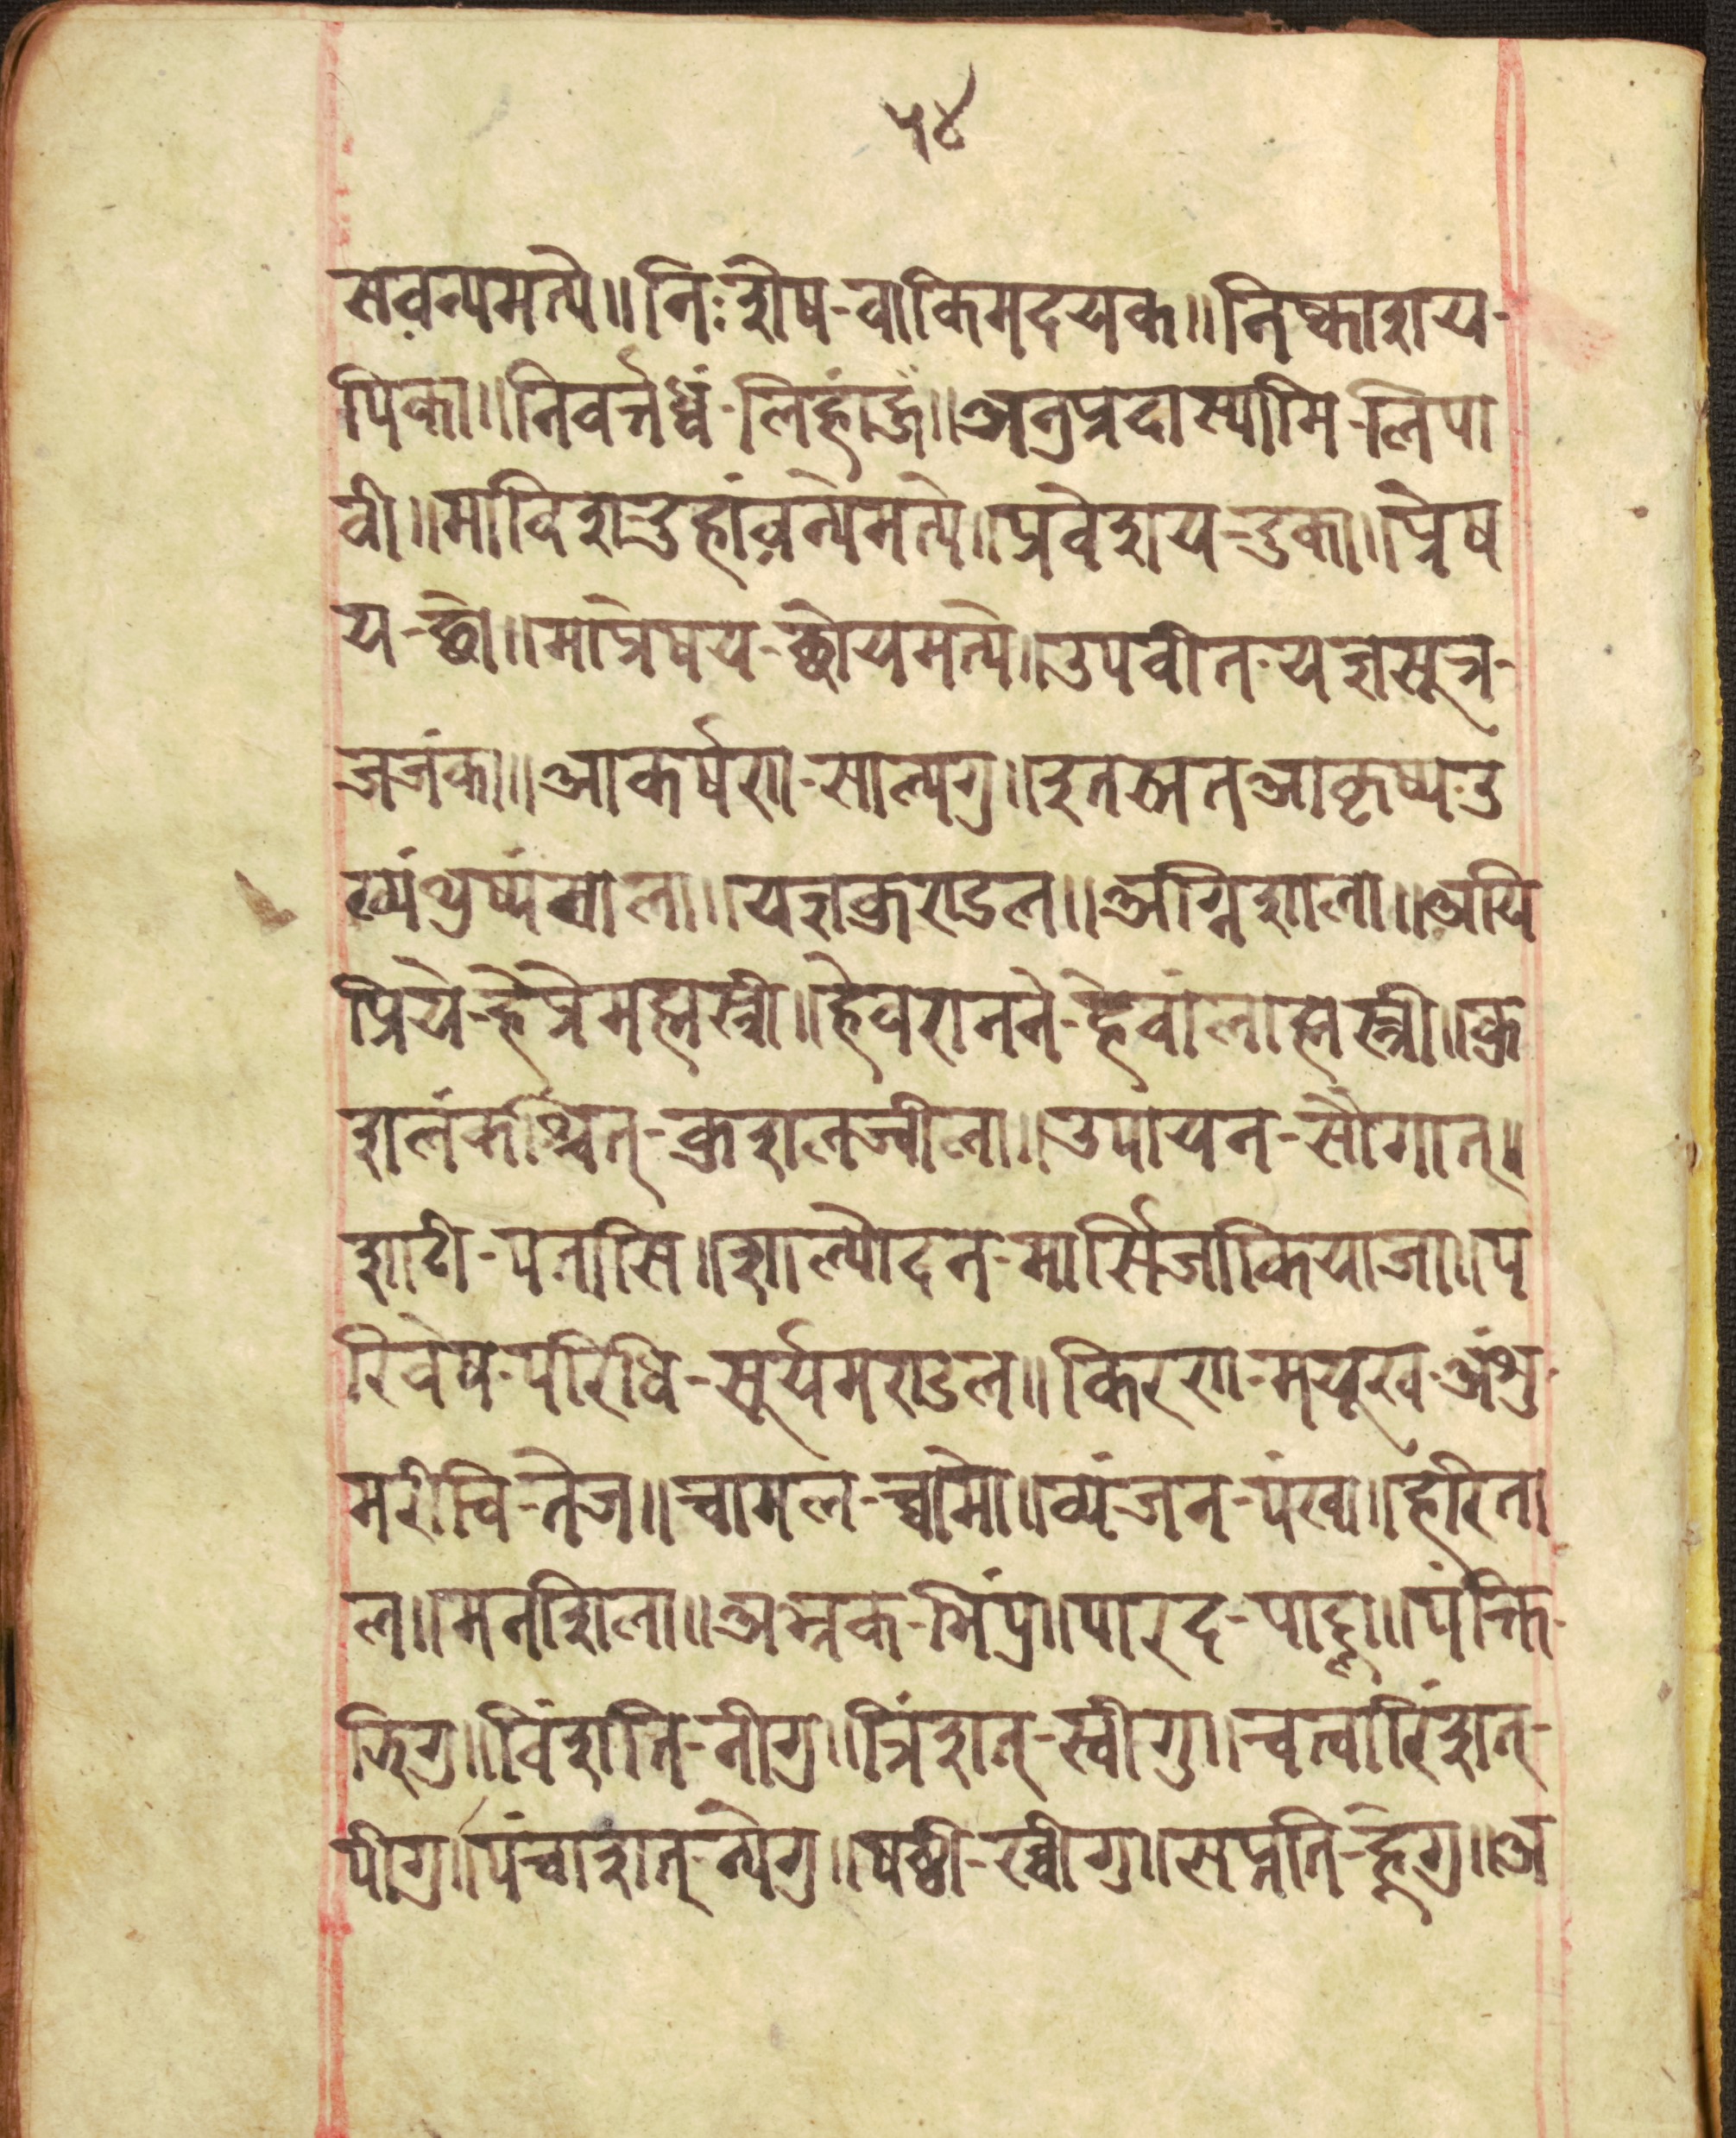 ५४
सवन्यमत्ये॥निःशेष-वाकिमदयक॥निष्काशय-
पिका॥निवर्त्तध्वं-लिहांह्रुं॥अनुप्रदास्यामि-लिपा
वी॥माविश-दुहांवन्येमत्ये॥प्रवेशय-दुका॥प्रेष
य-छ्वो॥माप्रेषय-छ्वोयमत्ये॥उपवीत-यज्ञसूत्र-
जजंका॥आकर्षण-साल्यगु॥इतस्नतआकृष्य-उ
ख्यंथुष्यंसाला॥यज्ञकुण्डल॥अग्निशाला॥अयि
प्रिये-हेप्रेमह्मस्त्री॥हेवरानने-हेवांलाह्मस्त्री॥कु
शलंकश्चित्-कुशलज्वीला॥उपायन-सौगात्॥
शाटी-पतासि॥शाल्योदन-मार्सिजाकियाजा॥प
रिवेष-परिधि-सूर्यमण्डल॥किरण-मयूख-अंशु-
मरीचि-तेज॥चामल-च्वामो॥व्यंजन-पंखा॥हरिता
ल॥मनशिला॥अभ्रक-मिंप्र॥पारद-पाद्दू॥पंक्ति-
झिगु॥विंशति-नीगु॥त्रिंशत्-स्वीगु॥चत्वारिंशत्-
पीगु॥पंचाशत्-न्येगु॥षष्ठी-ख्वीगु॥सप्तति-ह्नेगु॥अ